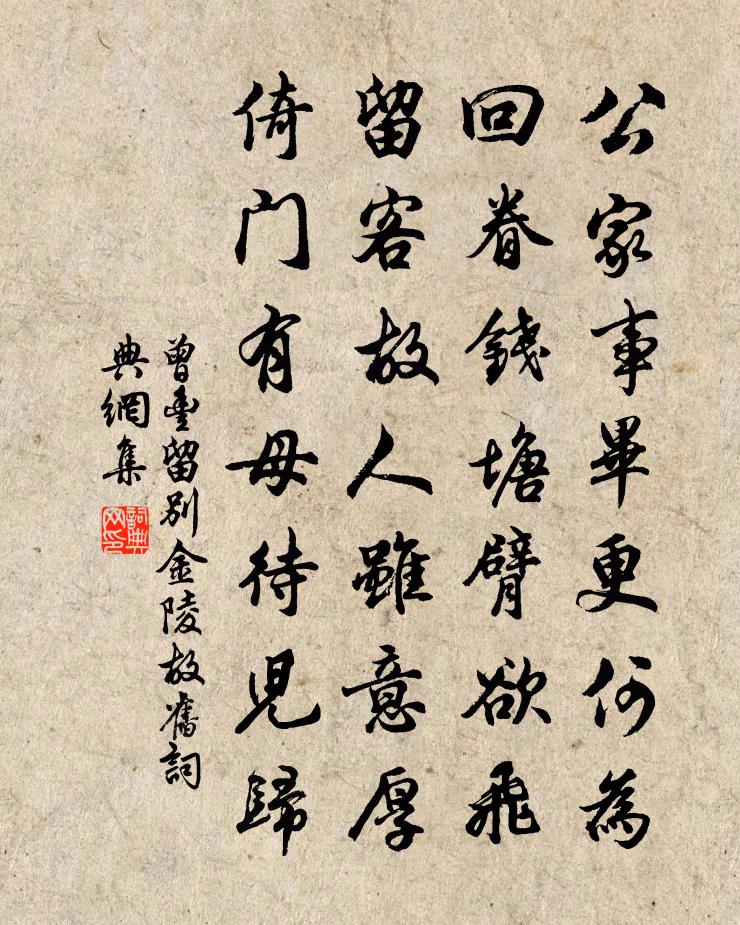 公家事畢更何為
回眷錢塘臂欲飛
留客故人雖意厚
倚門有母待兒歸
曾豐留別金陵故舊詞
典網集
詞典网印